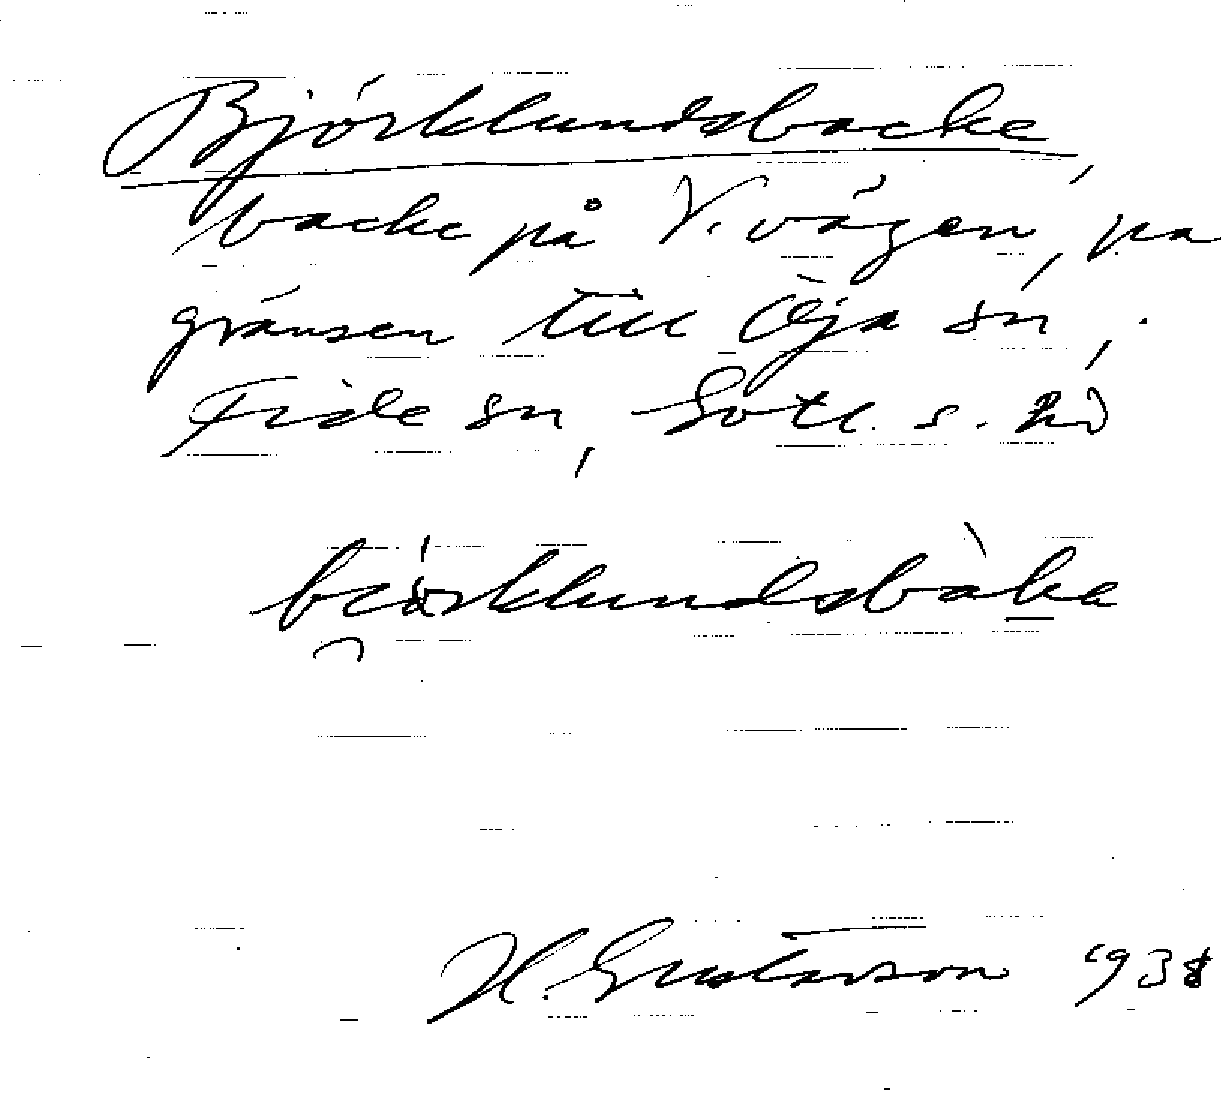 Björklundsbacke,
backe på V. vägen, på
gränsen till Öja sn,
Fide sn, Gotl. s. hd
bi̯örklundsbàka
H. Gustavson 1938